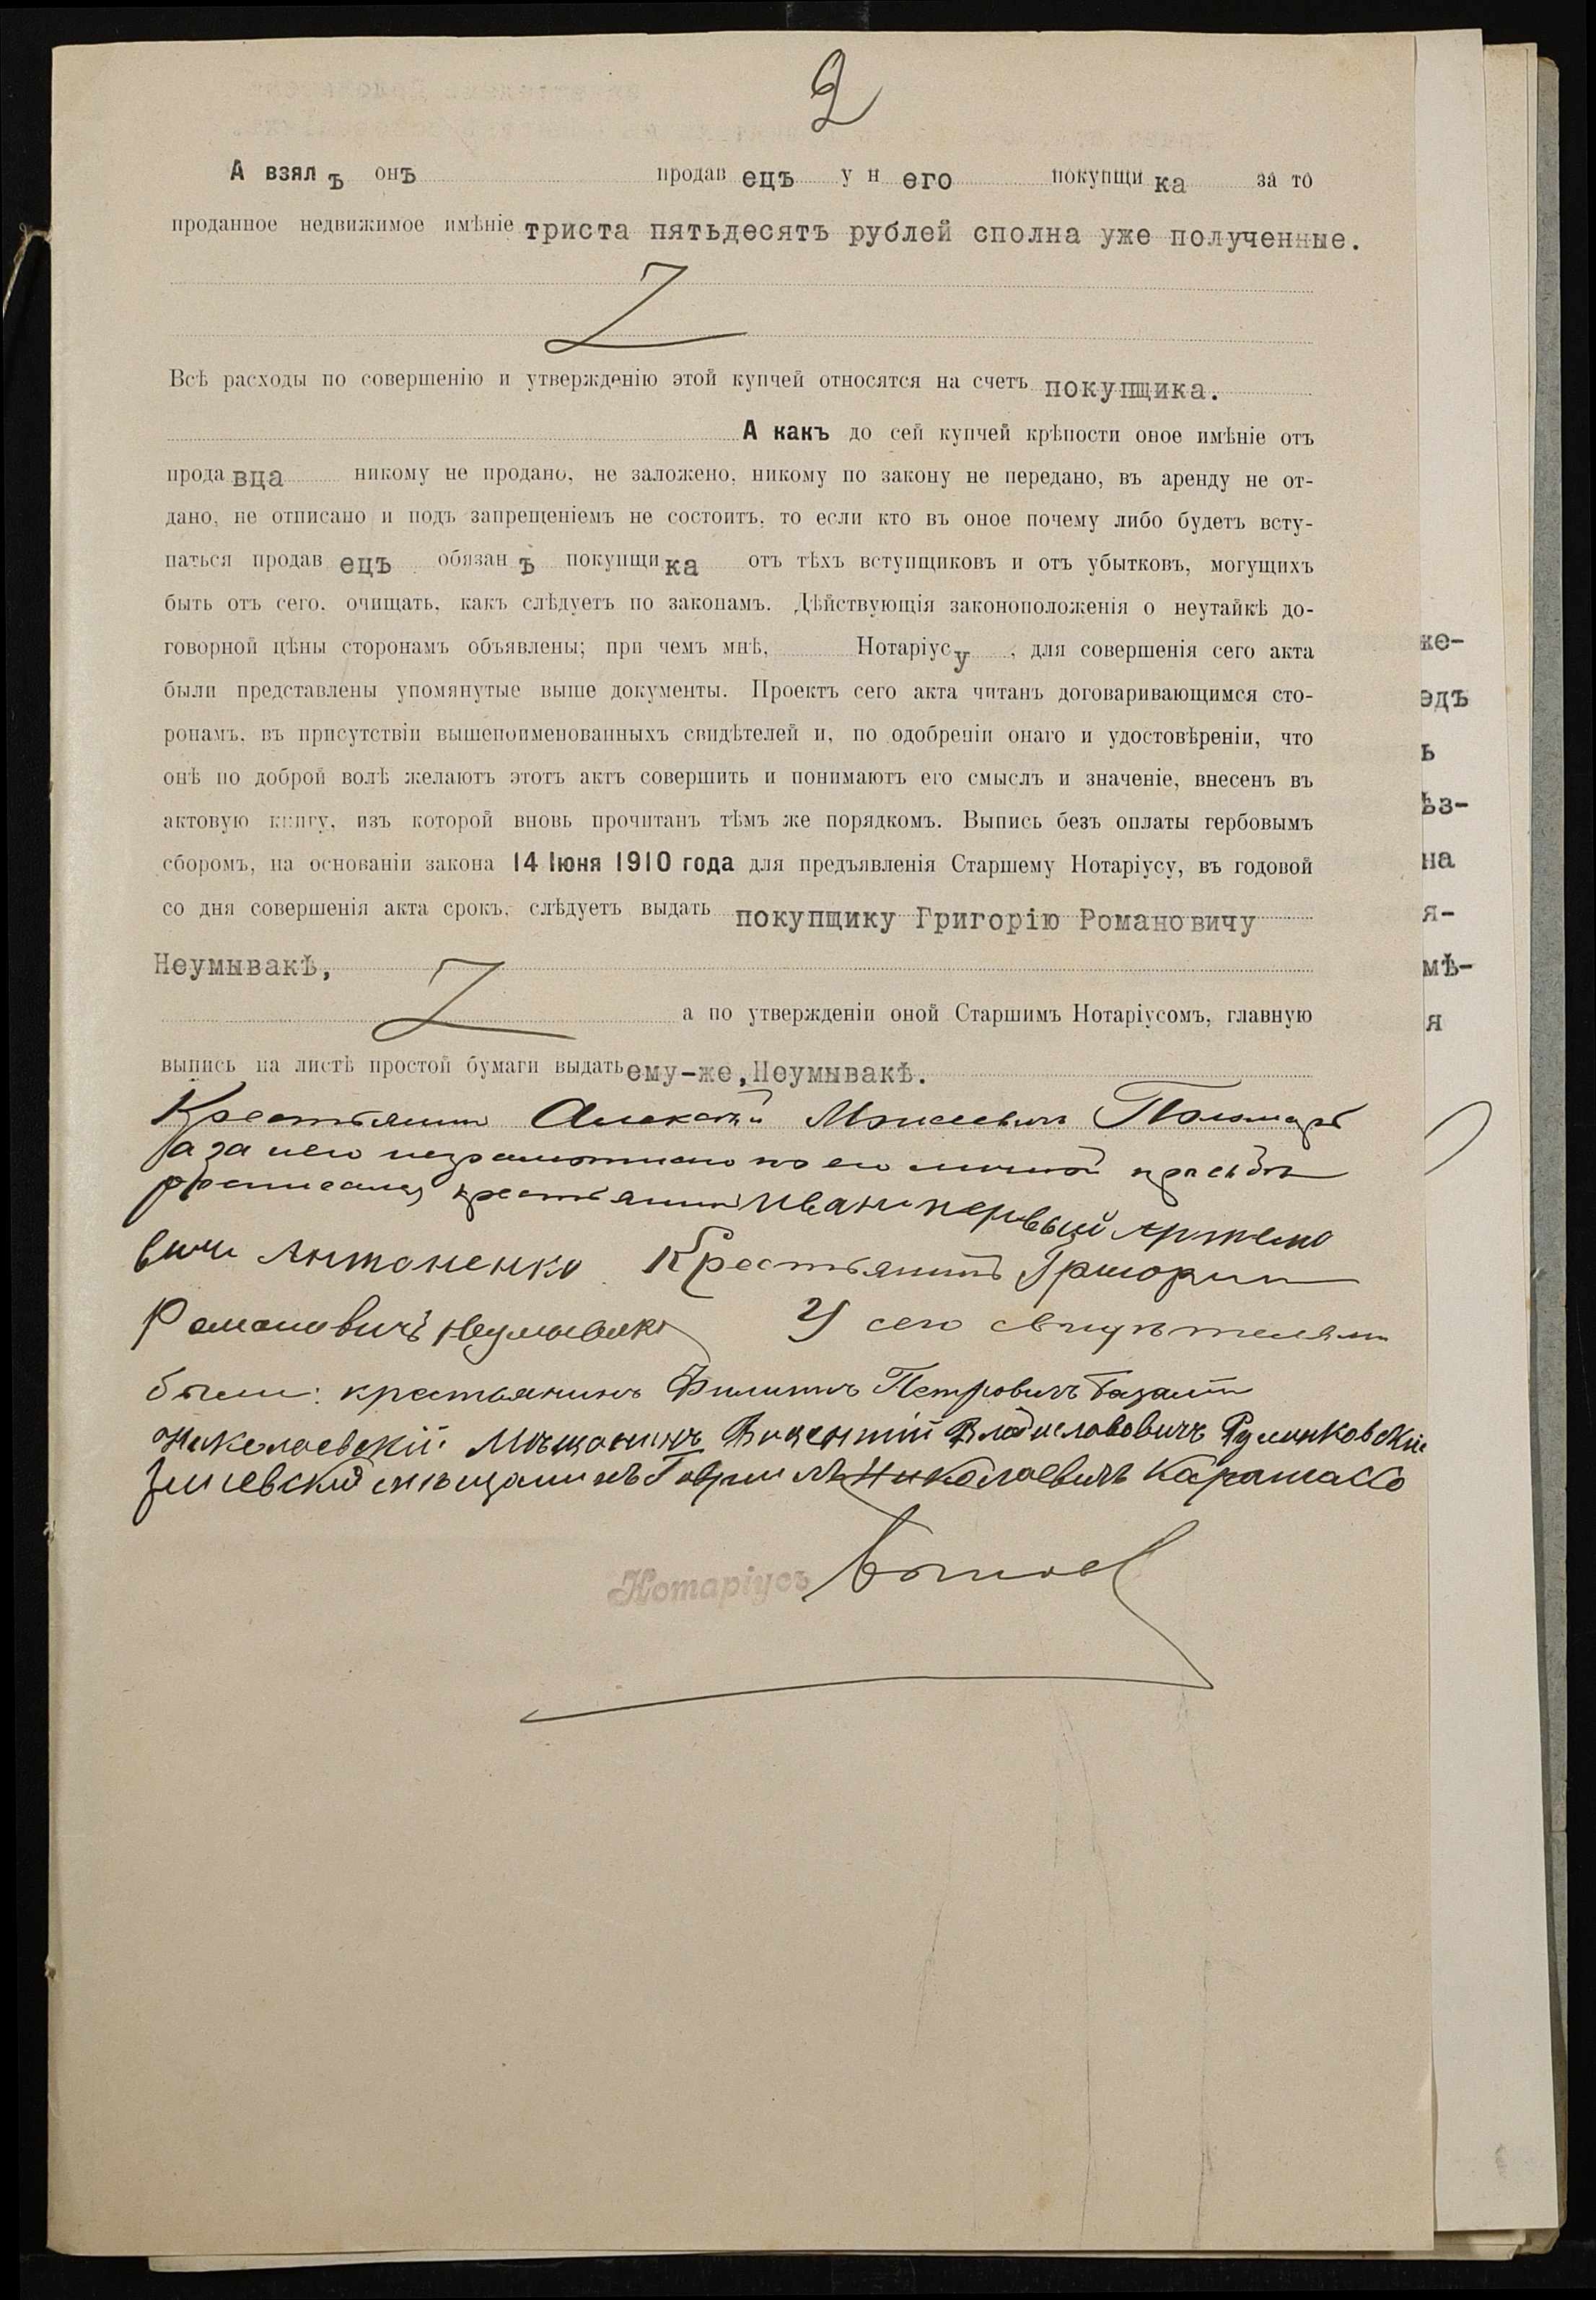 2
А взялъ онъ продавецъ у него покупщика за то
проданное недвижимое имѣніе триста пятьдесятъ рублей сполна уже полученные.
Всѣ расходы по совершенію и утвержденію этой купчей относятся на счетъ покупщика.
А какъ до сей купчей крѣпости оное имѣніе отъ
продавца никому не продано, не заложено, никому по закону не передано, въ аренду не от-
дано, не отписано и подъ запрещеніемъ не состоитъ, то если кто въ оное почему либо будетъ всту-
паться продавецъ обязанъ покупщика отъ тѣхъ вступщиковъ и отъ убытковъ, могущихъ
быть отъ сего, очищать, какъ слѣдуетъ по законамъ. Дѣйствующія законоположенія о неутайкѣ до-
говорной цѣны сторонамъ объявлены; при чемъ мнѣ, Нотаріусу, для совершенія сего акта
были представлены упомянутые выше документы. Проектъ сего акта читанъ договаривающимся сто-
ронамъ, въ присутствіи вышепоименованныхъ свидѣтелей и, по одобреніи онаго и удостовѣреніи, что
онѣ по доброй волѣ желаютъ этотъ актъ совершить и понимаютъ его смыслъ и значеніе, внесенъ въ
актовую книгу, изъ которой вновь прочитанъ тѣмъ же порядкомъ. Выпись безъ оплаты гербовымъ
сборомъ, на основаніи закона 14 Іюня 1910 года для предъявленія Старшему Нотаріусу, въ годовой
со дня совершенія акта срокъ, слѣдуетъ выдать покупщику Григорію Романовичу
Неумывакѣ,
а по утвержденіи оной Старшимъ Нотаріусомъ, главную
выпись на листѣ простой бумаги выдать ему-же, Неумывакѣ.
Крестьянин Алексѣй Моисеевич
а за него неграмотного по его личной просьбѣ
росписался крестьянин Иван первый Артемо
вичъ Антоненко Крестьянинъ Григорий
Романовичъ Неумывака У сего свидѣтелями
были: крестьянинъ Филиппъ Петровичъ
Николаевскій Мѣщанинъ Викентій Владиславовичъ
мѣщанинъ Гавриилъ Николаевичъ
Нотаріусъ
же-
эдъ
ь
ѣз-
на
я-
мѣ-
я